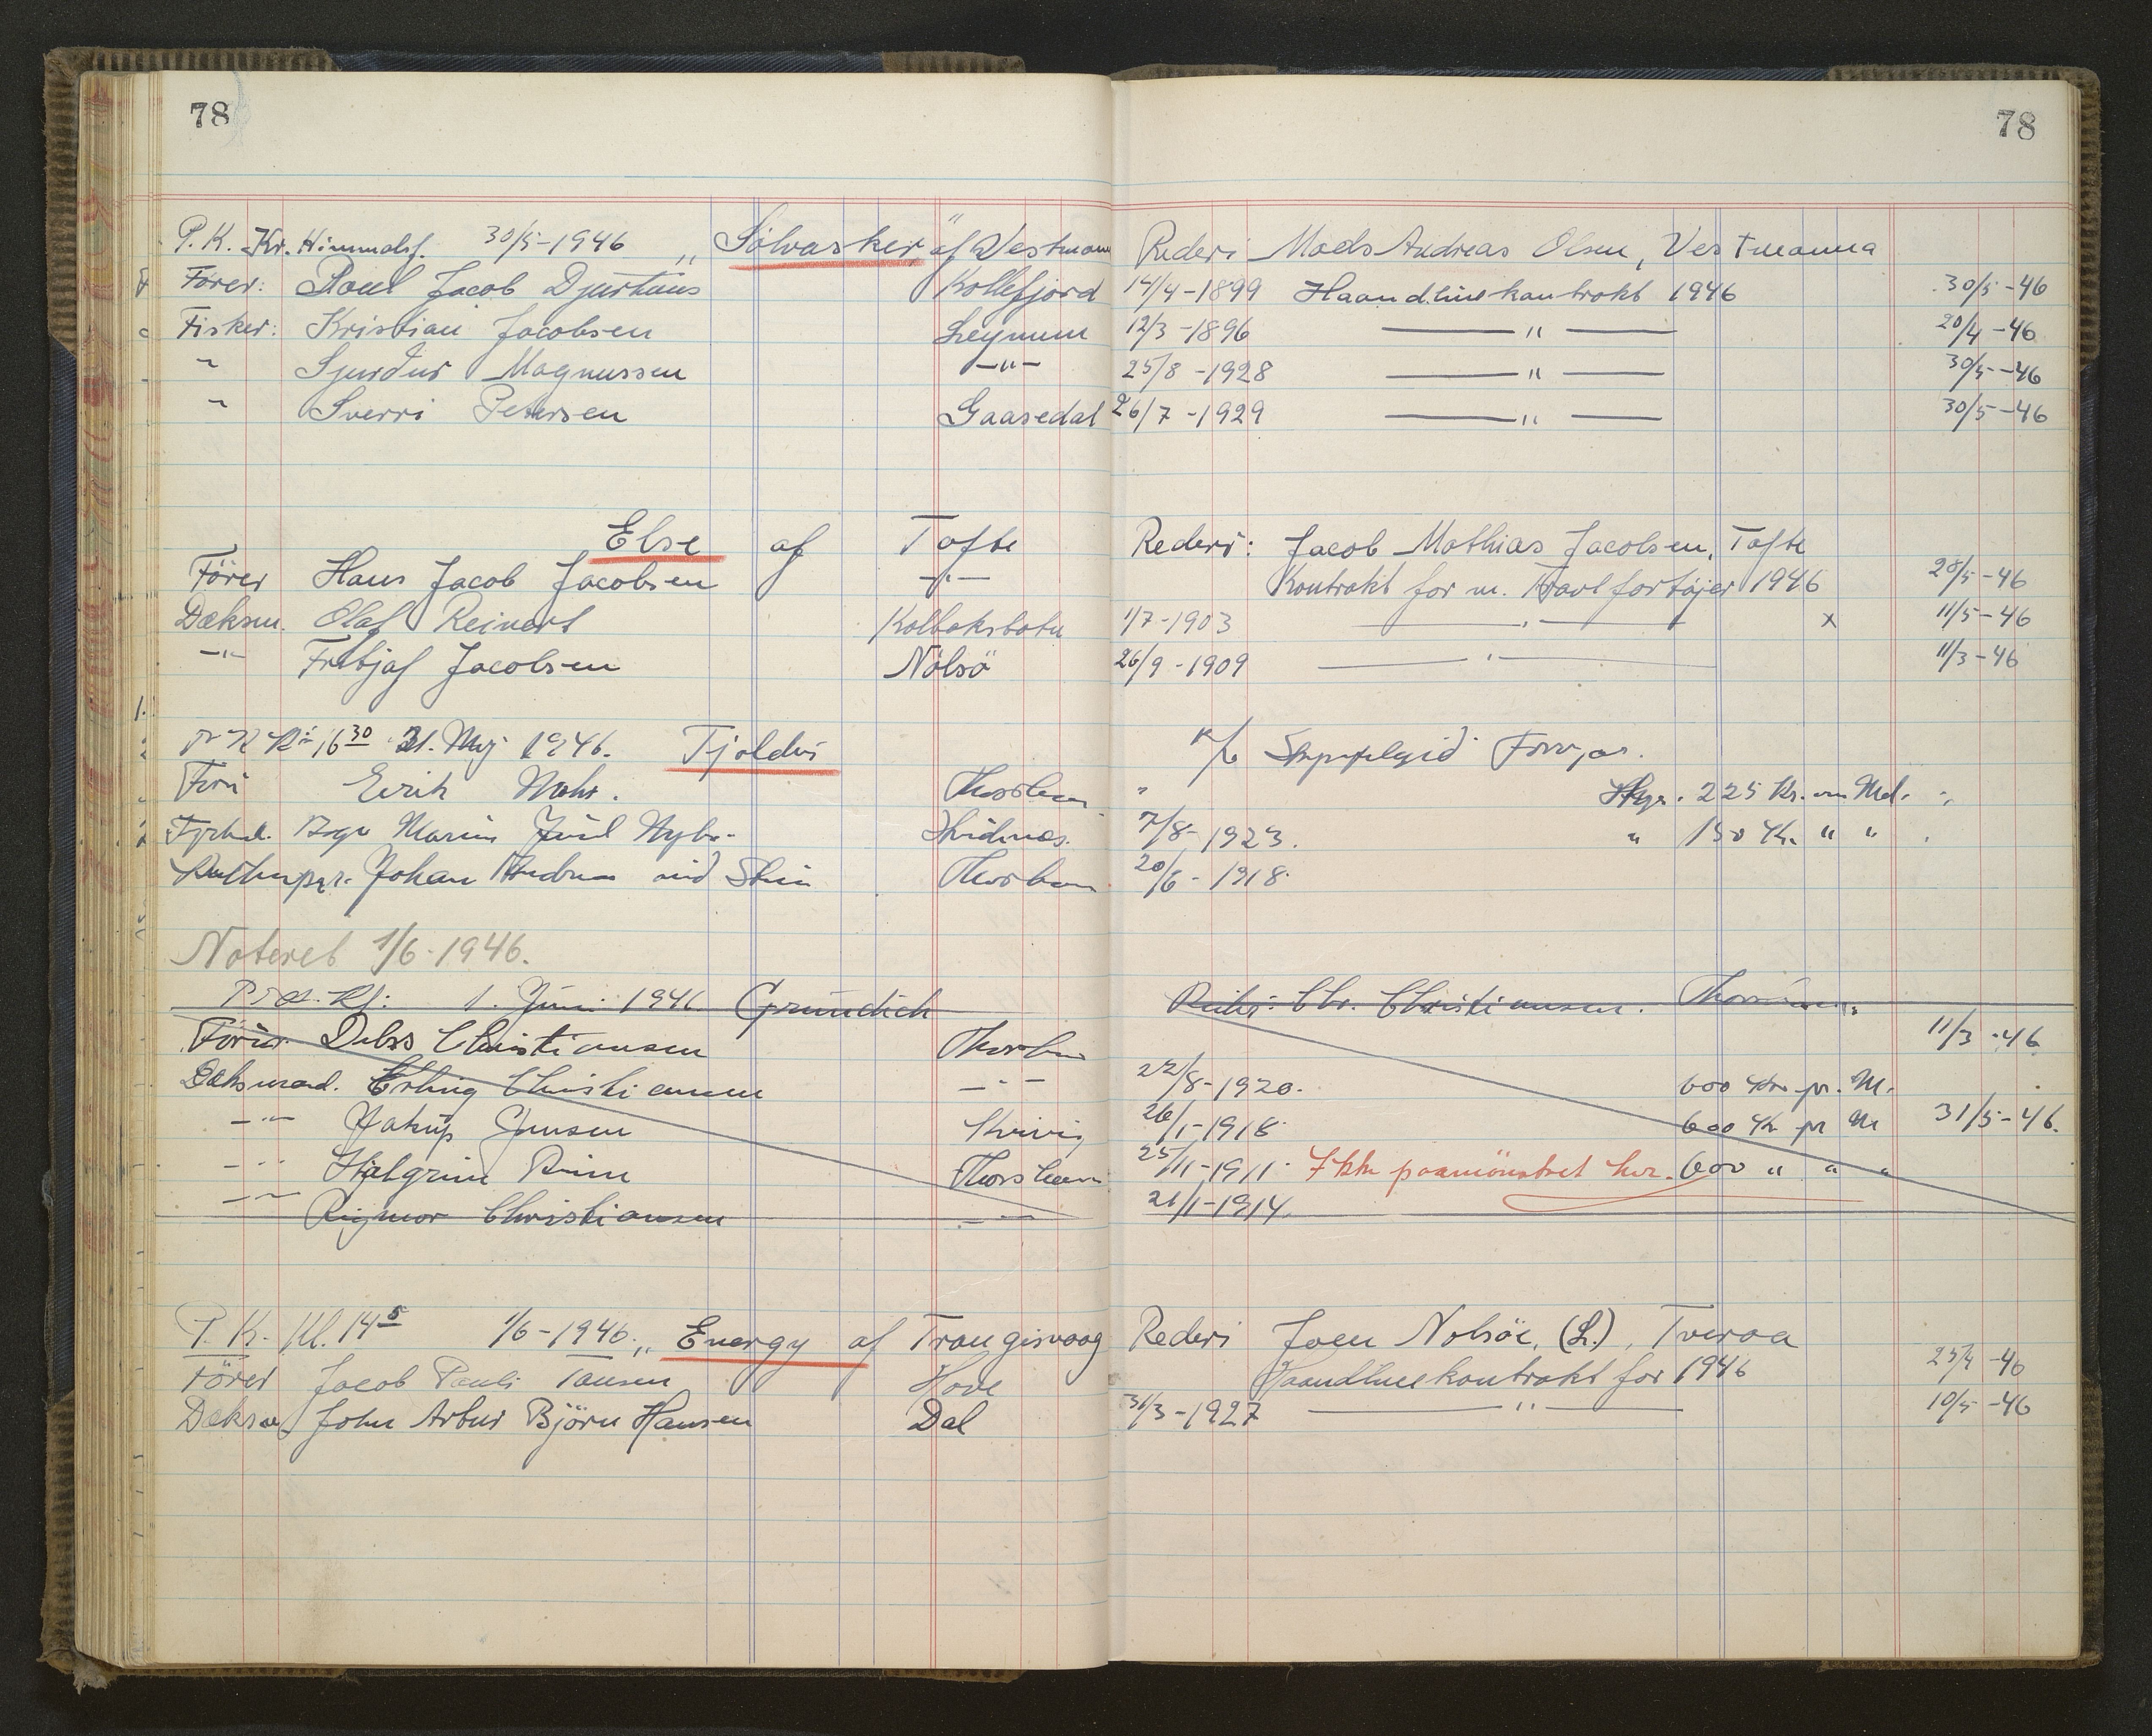 78 78
P.K. Kr. Himmelsf. 30/5-1946 „Sölvasker" af Vestmann Rederi Mads Andreas Olsen, Vestmanna
Förer: Poul Jacob Djurhuus Kollefjord 14/4-1899 Haandlinekontrakt 1946 30/5-46
Fisker: Kristian Jacobsen Leynum 12/3-1896 — " — 20/4-46
" Sjurdur Magnussen —"— 25/8-1928 — " — 30/5-46
" Sverri Petersen Gaasedal 26/7-1929 — " — 30/5-46
Else af Tofte Rederi: Jacob Mathias Jacobsen, Tofte
Förer Hans Jacob Jacobsen —"— Kontrakt for m. Travlfartöjer 1946 28/5-46
Dæksm. Olaf Reinert Kolbeksbotn 1/7-1903 — " — x 11/5-46
—"— Fritjof Jacobsen Nölsö 26/9-1909 — " — 11/3-46
16 30 31. Maj 1946. Tjaldur
Erik Mohr. " Hyr. 225 Kr. om Md.
Marius Juul 7/8-1923. " 150 Kr. " "
Johan 20/6-1918.
Noteret 1/6-1946.
1. Juni 1946 Grundick Rederi: Chr. Christiansen. Thorshavn
Förer. Debes Christiansen Thorshavn 11/3-46
Dæksmand. Erling Christiansen —"— 22/8-1920. 600 Kr. pr. M.
—"— Jakup Jensen Kvivig 26/1-1918. 600 Kr pr M 31/5-46.
—"— Hjalgrim Thorshavn 25/11-1911. Ikke paamönstret her. 600 " " "
—"— Rigmor Christiansen —"— 21/1-1914.
P.K. Kl. 14 5 1/6-1946. „Energy af Trangisvaag Rederi Joen Nolsöe, (L.), Tveraa
Förer Jacob Pauli Tausen Hove Haandlinekontrakt for 1946 25/4-46
Dæksm John Artur Björn Hansen Dal 31/3-1927 — " — 10/5-46